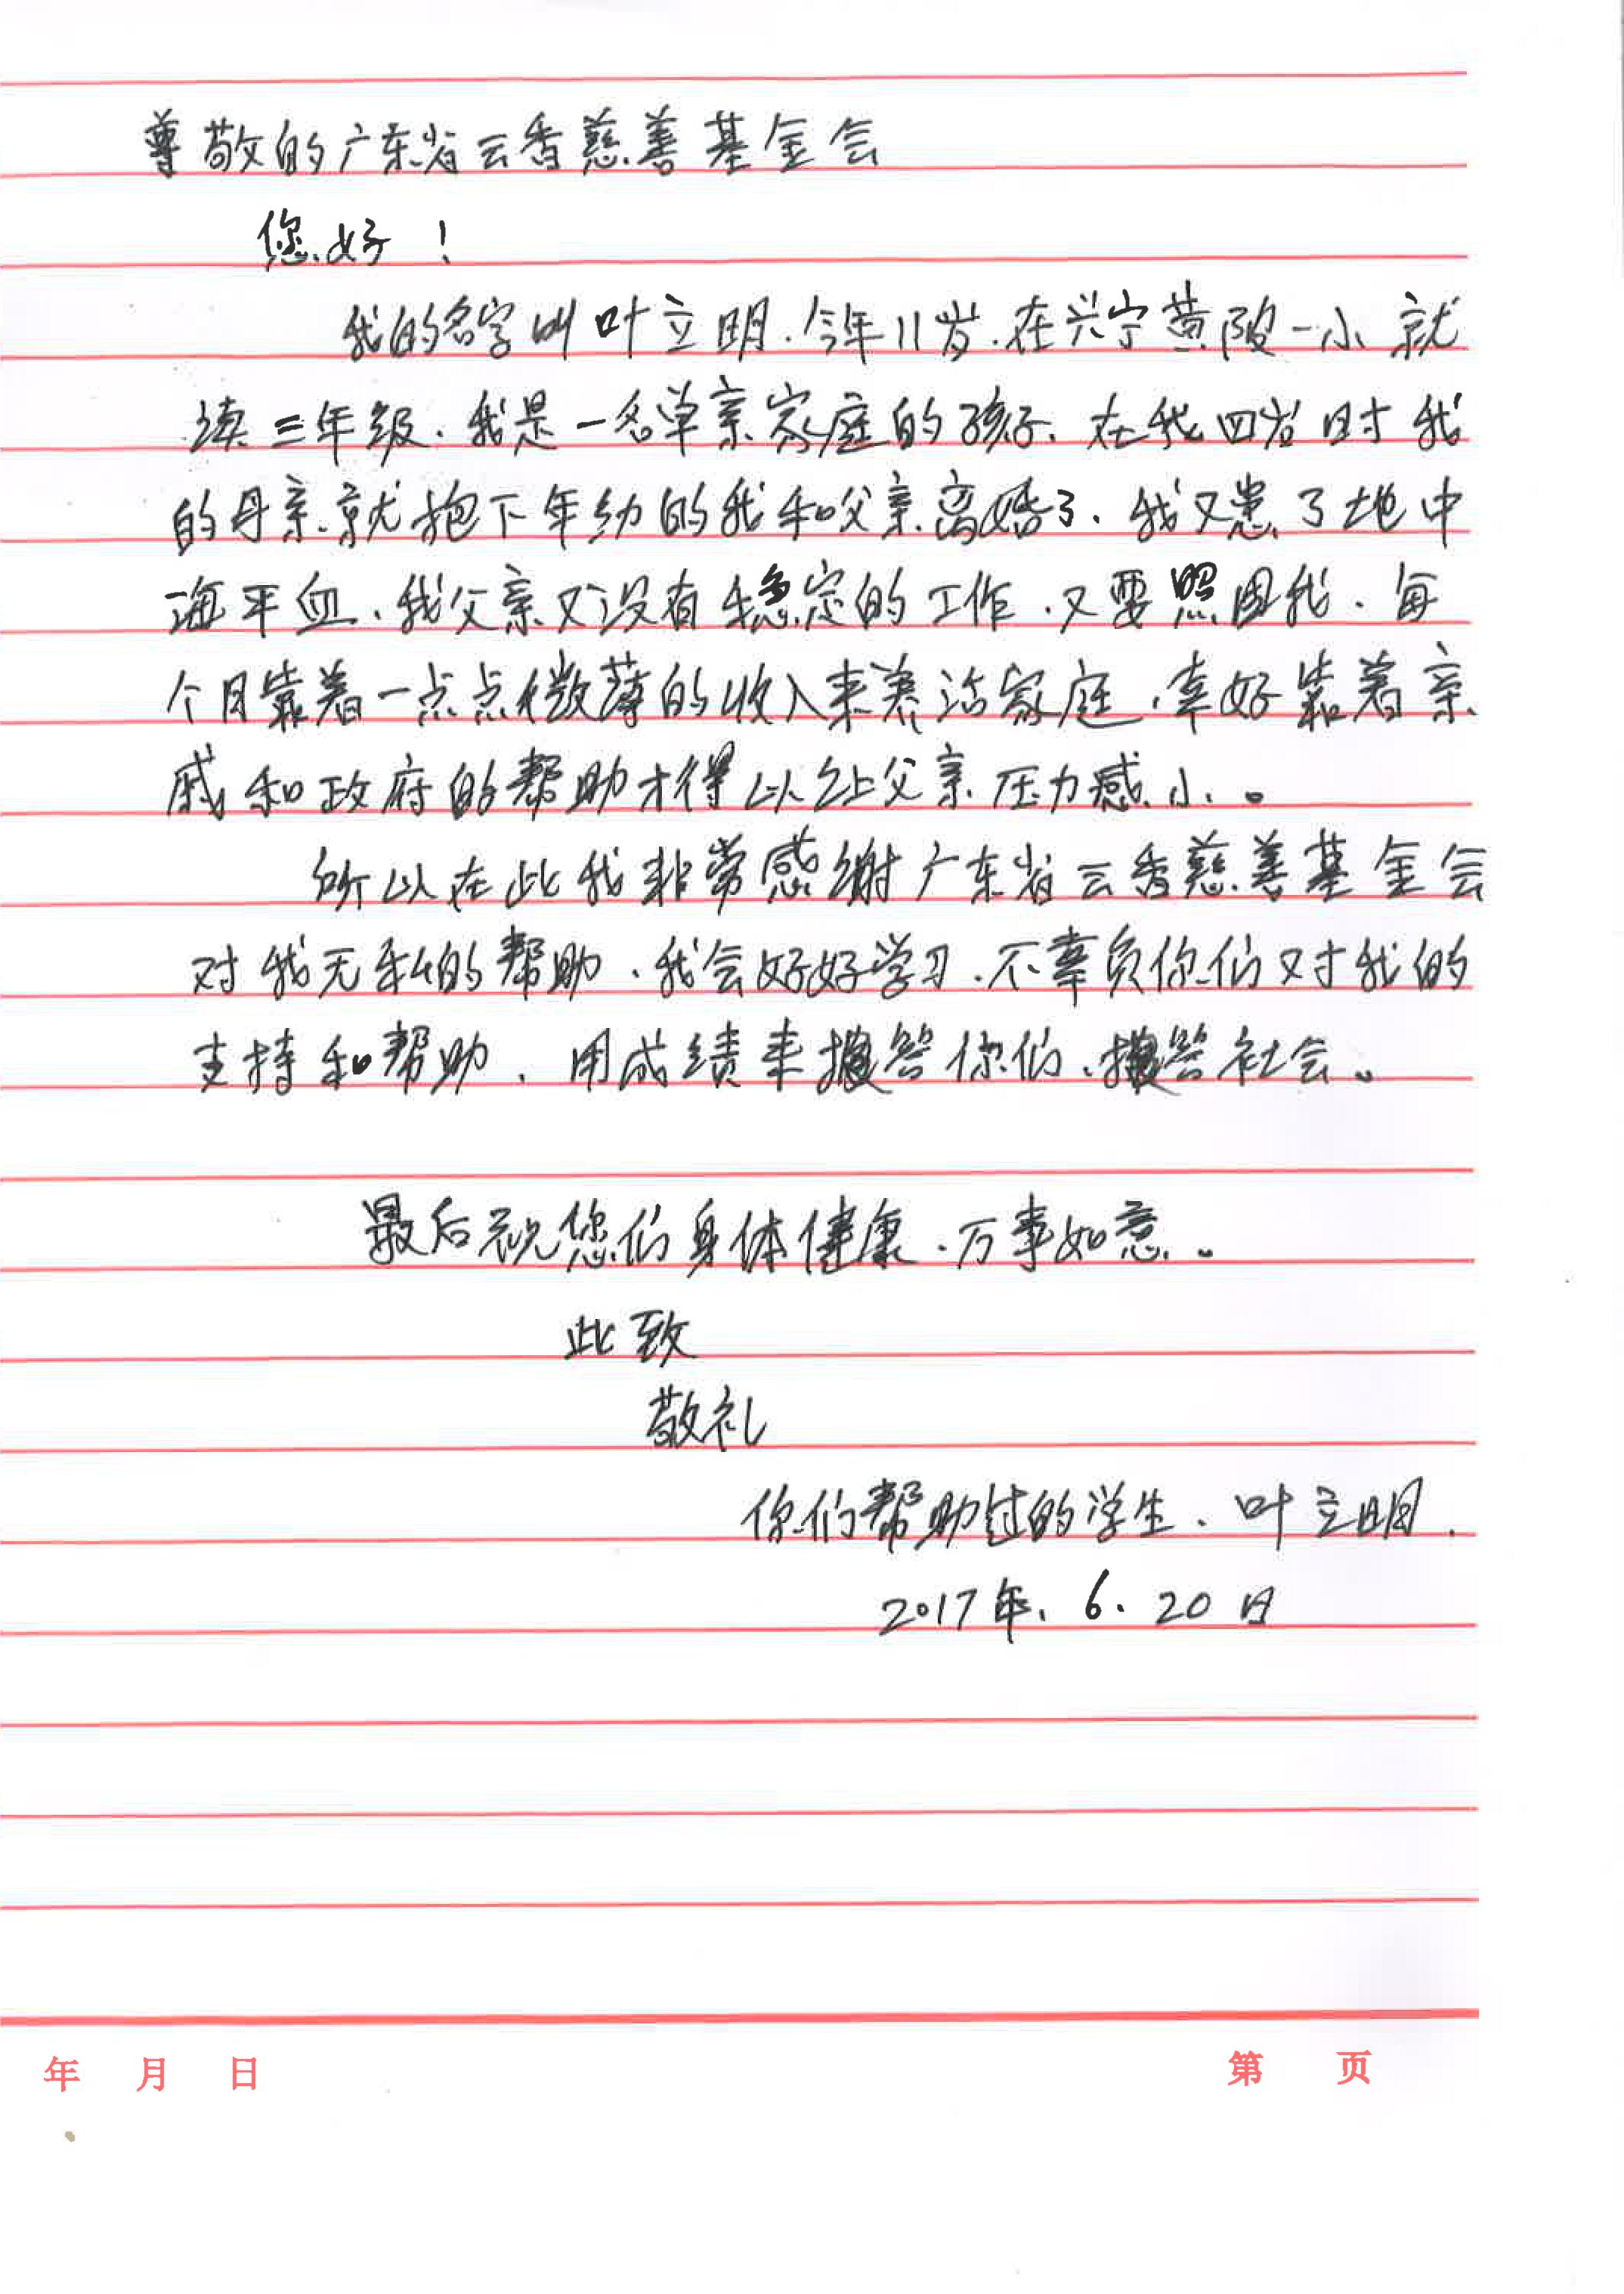 尊敬的广东省云香慈善基金会
您好！
我的名字叫叶立明.今年11岁.在兴宁黄陂一小就
读三年级.我是一名单亲家庭的孩子.在我四岁时我
的母亲就抱下年幼的我和父亲离婚了.我又患了地中
海平血.我父亲又没有稳定的工作.又要照固我.每
个月靠着一点点微薄的收入来养活家庭.幸好靠着亲
戚和政府的帮助才得以让父亲压力感小。
所以在此我非常感谢广东省云香慈善基金会
对我无私的帮助.我会好好学习.不辜负你们对我的
支持和帮助.用成绩来报答你们.报答社会。
最后祝您们身体健康.万事如意。
此致
敬礼
你们帮助过的学生.叶立明.
2017年.6.20日
年 月 日 第 页